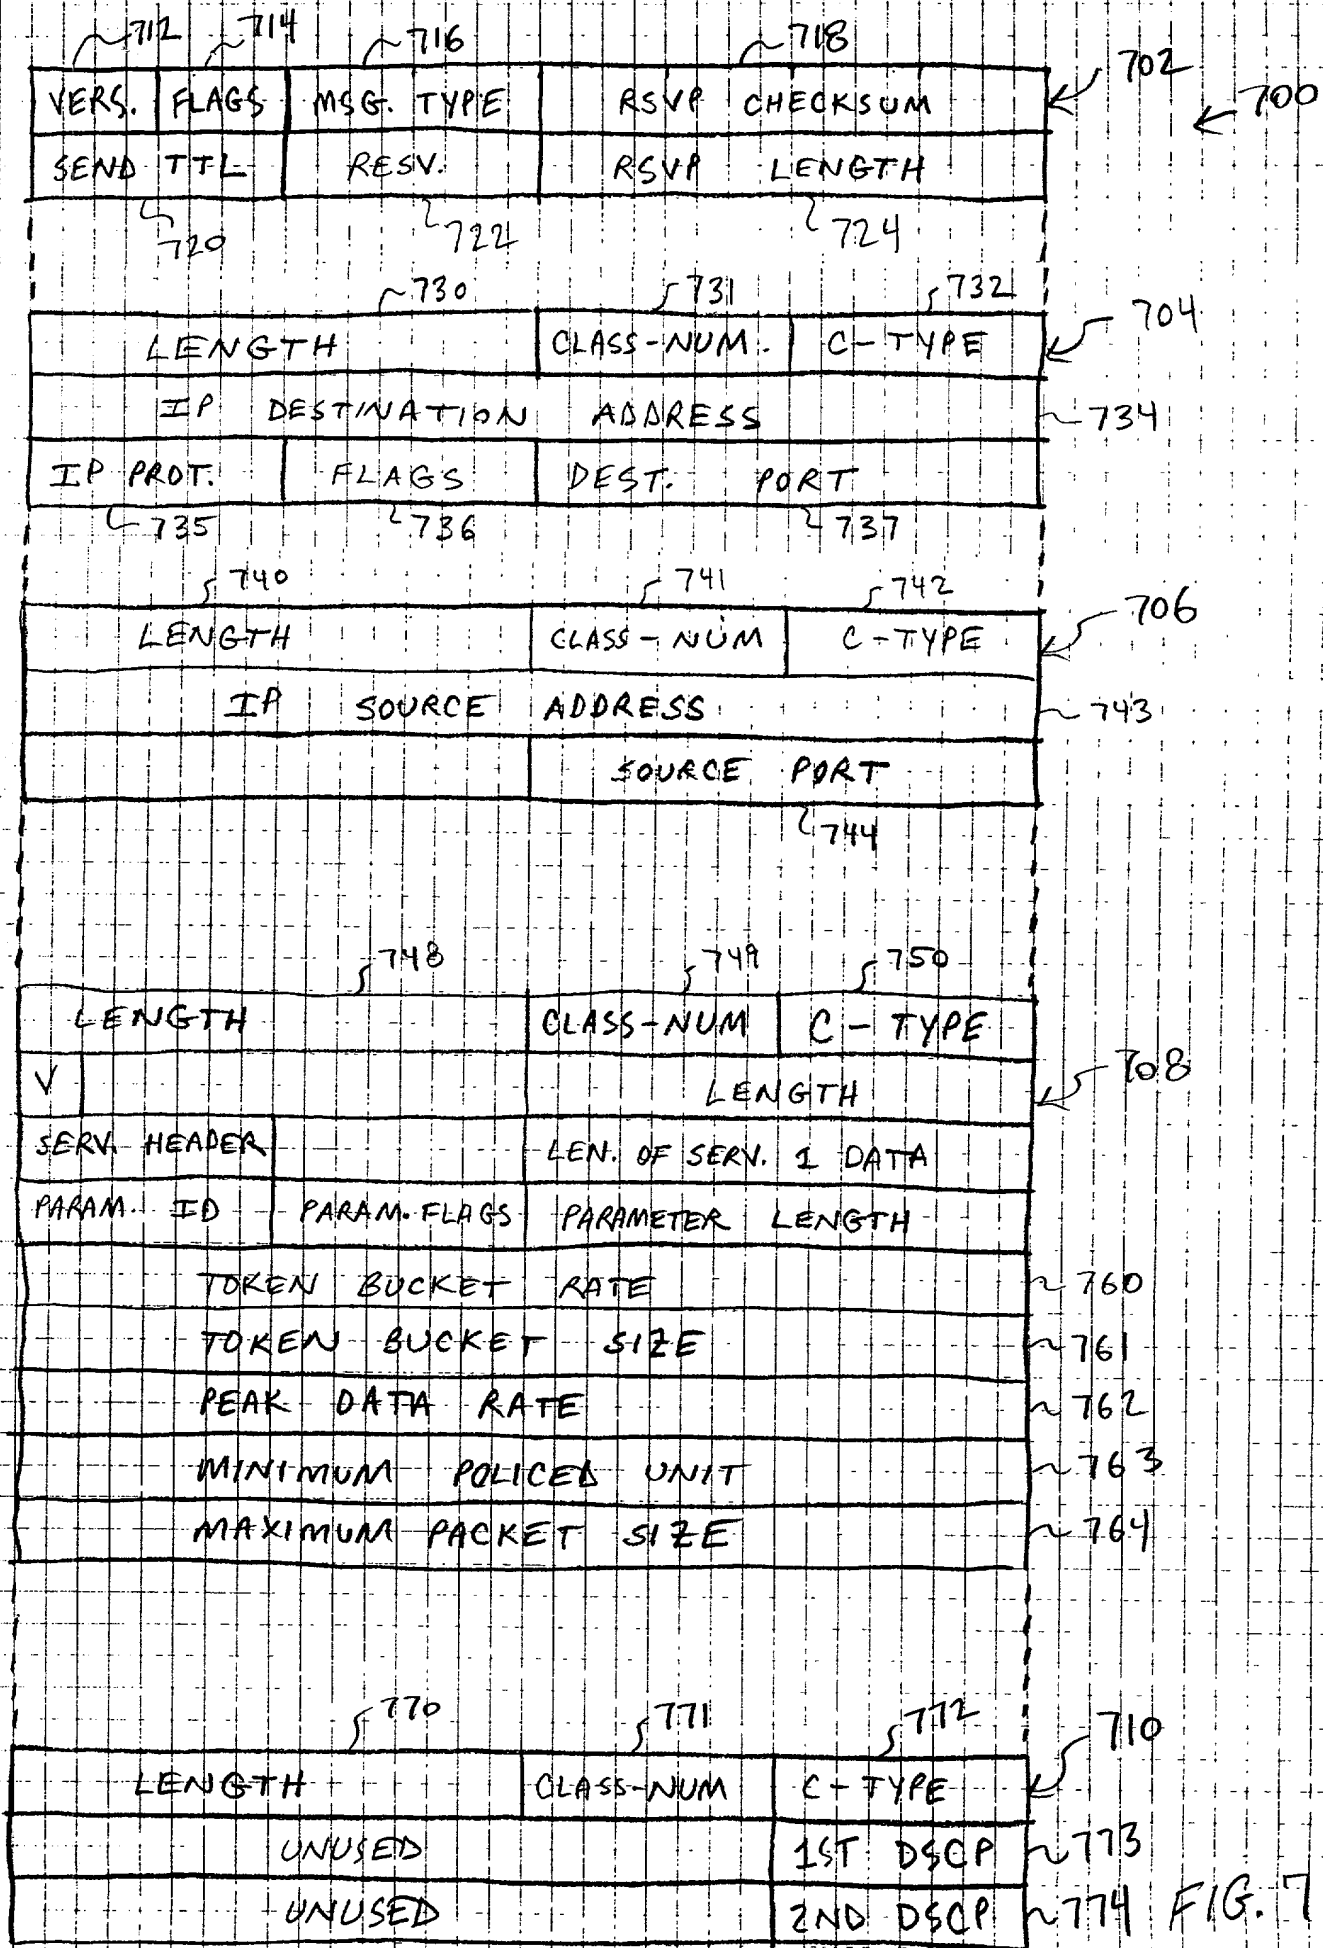 712 714 716 718 702
700
VERS. FLAGS MSG. TYPE RSVP CHECKSUM
SEND TTL RESV. RSVP LENGTH
720 722 724
730 731 732 704
LENGTH CLASS-NUM. C-TYPE
IP DESTINATION ADDRESS 734
IP PROT. FLAGS DEST. PORT
735 736 737
740 741 742 706
LENGTH CLASS-NUM C-TYPE
IP SOURCE ADDRESS 743
SOURCE PORT
744
748 749 750
LENGTH CLASS-NUM C-TYPE
708
V LENGTH
SERV. HEADER LEN. OF SERV. 1 DATA
PARAM. ID PARAM. FLAGS PARAMETER LENGTH
TOKEN BUCKET RATE 760
TOKEN BUCKET SIZE 761
PEAK DATA RATE 762
MINIMUM POLICED UNIT 763
MAXIMUM PACKET SIZE 764
770 771 772 710
LENGTH CLASS-NUM C-TYPE
UNUSED 1ST DSCP 773
UNUSED 2ND DSCP 774
FIG. 7